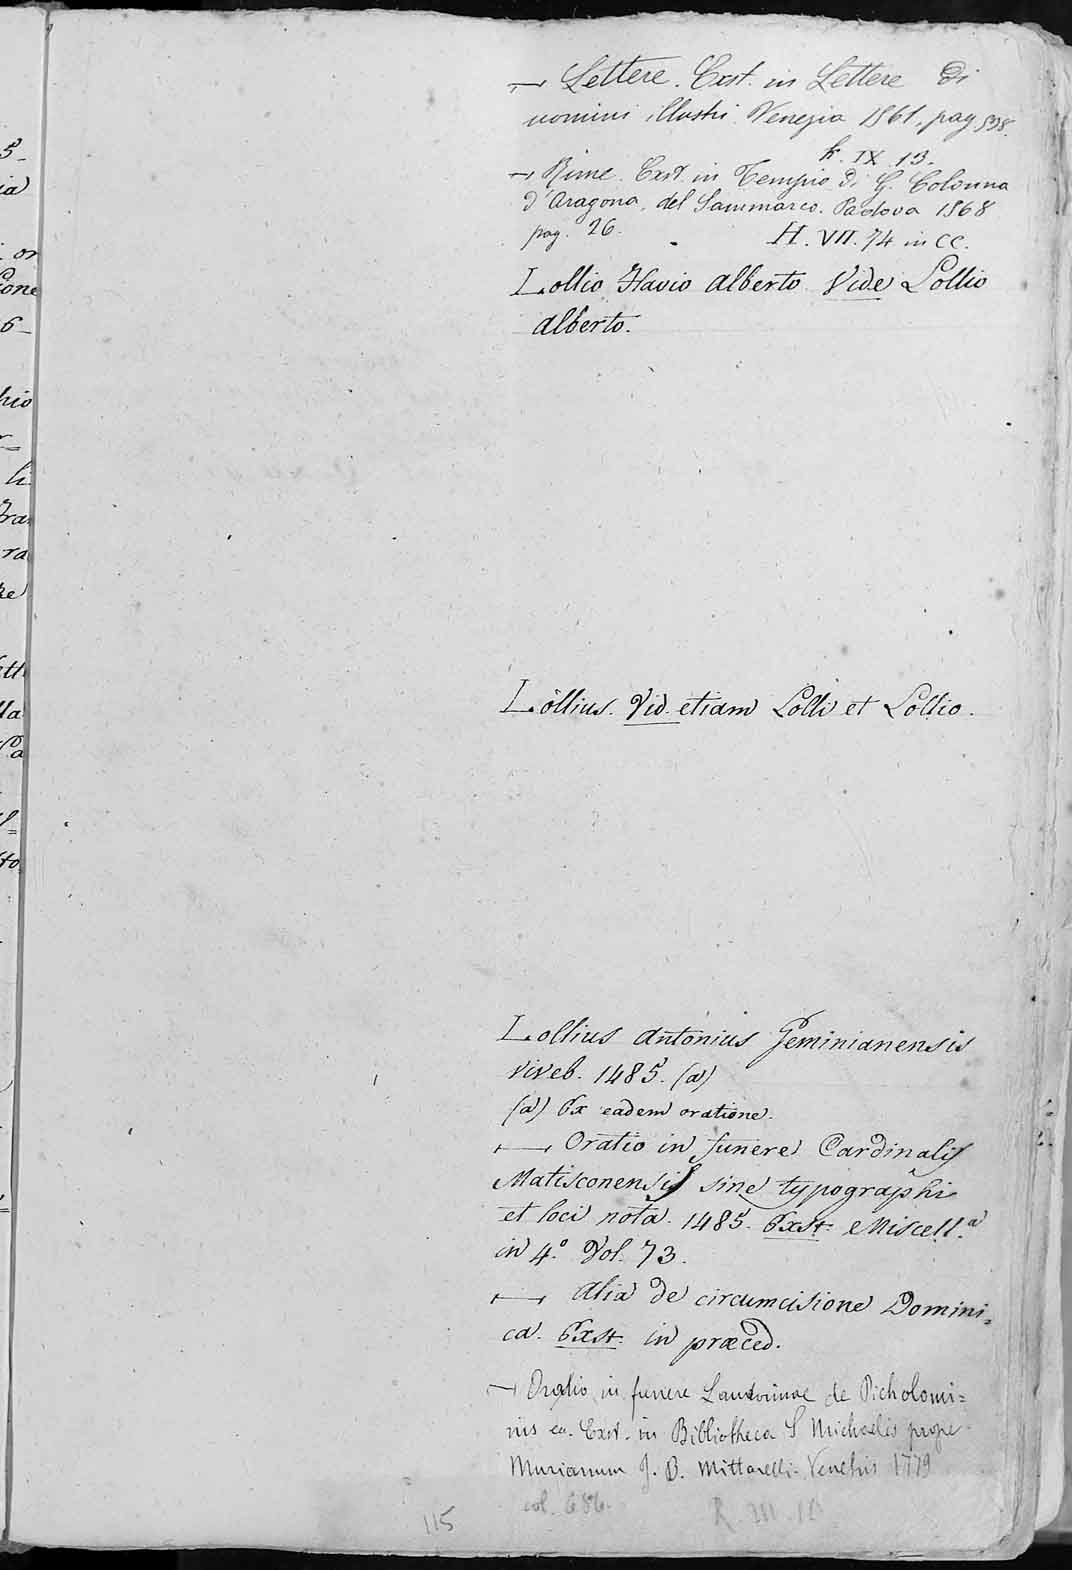 — Lettere. Exst. in Lettere di
uomini illustri. Venezia 1861, pag 538.
k. IX. 13.
— Rime. Exst. in Tempio di G. Colonna
d'Aragona, del Sammarco. Padova 1868
pag. 26.
H. VII. 74 in CC.
Lollio Flavio Alberto Vide Lollio
Alberto.
Lollius. Vid. etiam Lolli et Lollio.
Lollius Antonius Geminianensis
viveb. 1485. (a)
(a) Ex eadem oratione.
— Oratio in funere Cardinalis
Matisconensis sine typographi
et loci nota. 1485. Exst. Miscell.a
in 4.o Vol. 73.
— Alia de circumcisione Domini=
ca. Exst. in præced.
— Oratio in funere Laudomiae de Picholomi=
nis Exst. in Bibliotheca S Michaelis prope
Murianum J. B. Mittarelli. Venetiis 1779
col. 686.
115